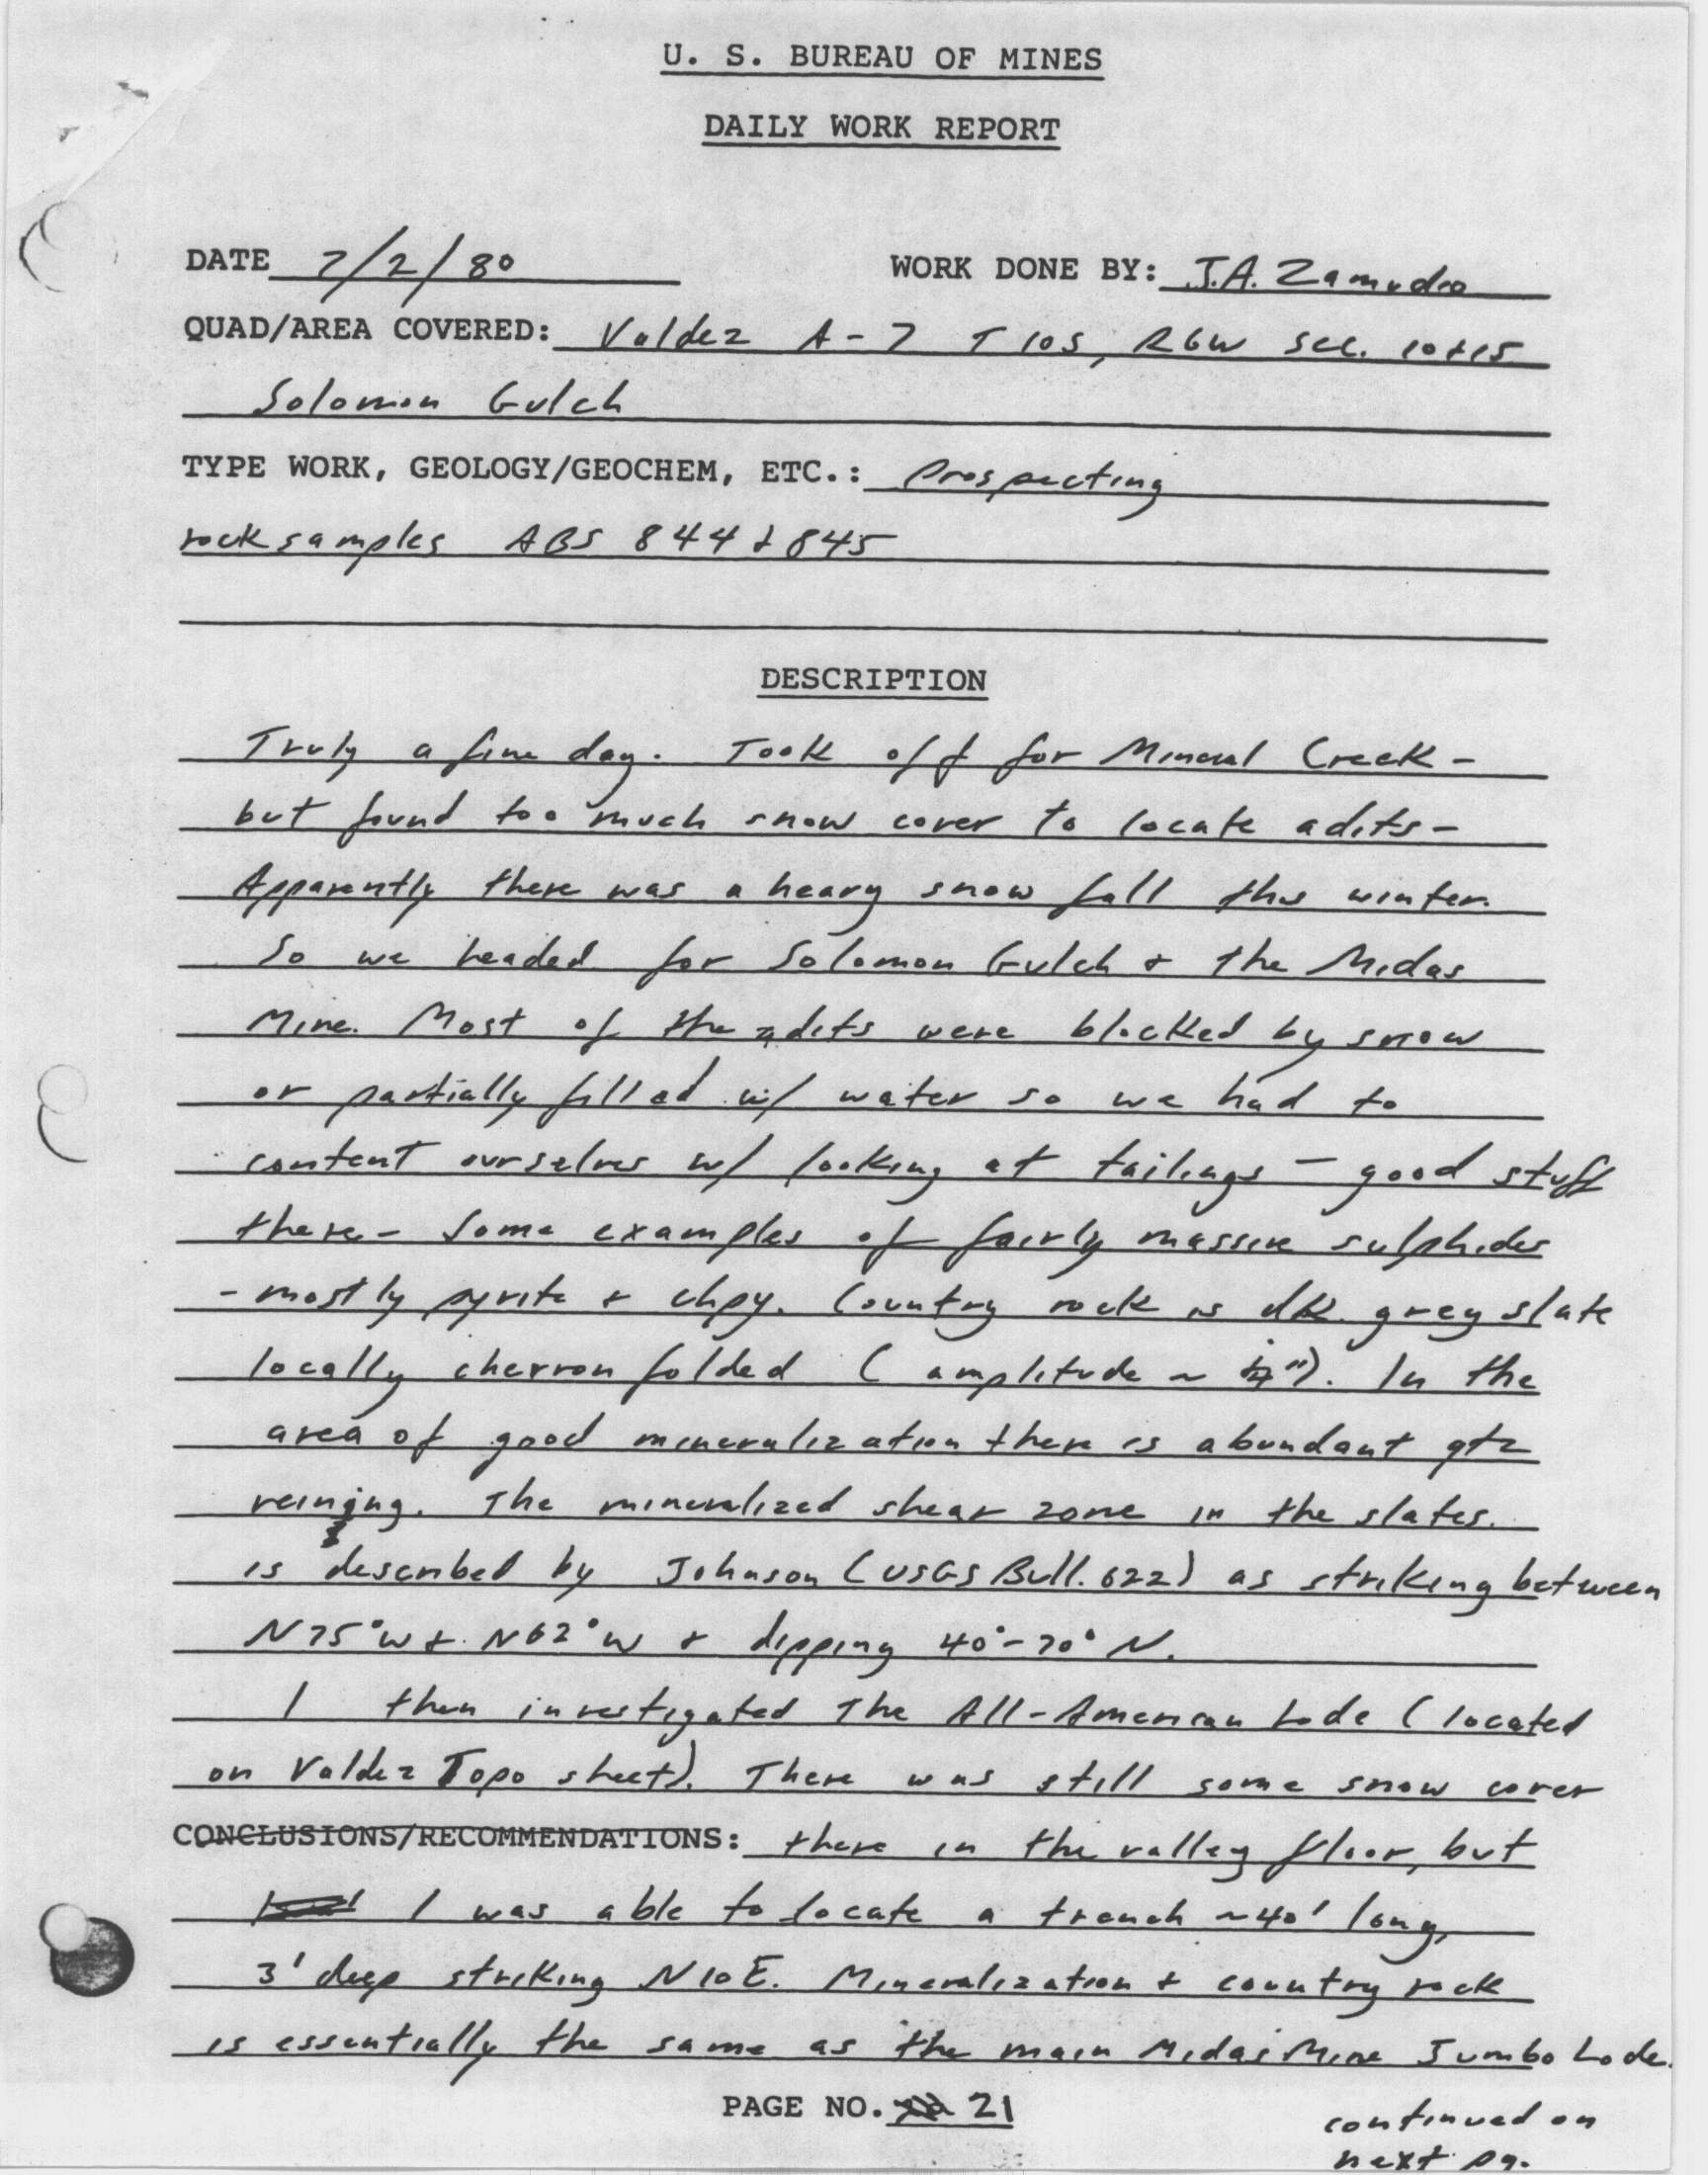 U. S. BUREAU OF MINES
DAILY WORK REPORT
DATE 7/2/80 WORK DONE BY: J.A. Zamudio
QUAD/AREA COVERED: Valdez A-7 T10S, R6W sec. 10+15
Solomon Gulch
TYPE WORK, GEOLOGY/GEOCHEM, ETC.: Prospecting
rock samples ABS 844 & 845
DESCRIPTION
Truly a fine day. Took off for Mineral Creek -
but found too much snow cover to locate adits -
Apparently there was a heavy snow fall this winter.
So we headed for Solomon Gulch & the Midas
Mine. Most of the adits were blocked by snow
or partially filled w/ water so we had to
content ourselves w/ looking at tailings - good stuff
there - some examples of fairly massive sulphides
- mostly pyrite & chpy. Country rock is dk. grey slate
locally chevron folded (amplitude ~ "). In the
area of good mineralization there is abundant qtz
veining. The mineralized shear zone in the slates
is described by Johnson (USGS Bull. 622) as striking between
N75°W & N62°W & dipping 40°-70° N.
I then investigated the All-American Lode (located
on Valdez Topo sheet). There was still some snow cover
CONCLUSIONS/RECOMMENDATIONS: there in the valley floor, but
I was able to locate a trench ~40' long,
3' deep striking N10E. Mineralization & country rock
is essentially the same as the main Midas Mine Jumbo Lode.
PAGE NO. 21
continued on
next pg.